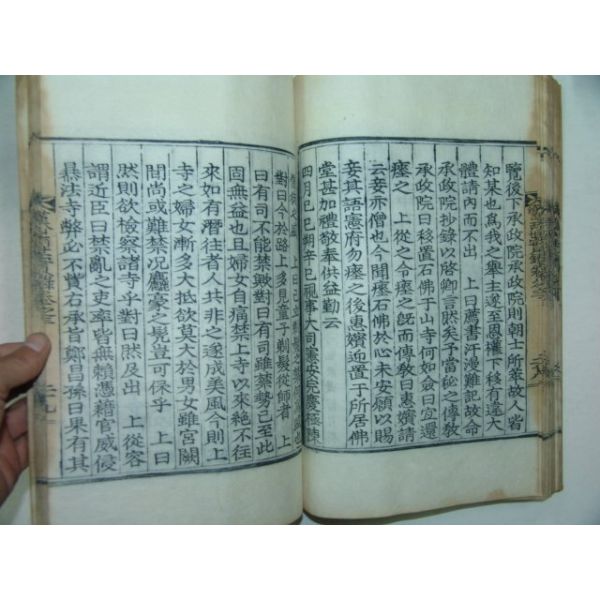 覽後下承政院承政院則朝士所萃故人皆
知某也爲我之擧主遂至恩權下移有違大
體請內而不出 上曰薦書汗漫難記故命
承政院抄錄以啓卿言然矣予當秘之傳敎
承政院曰移置石佛于山寺何如僉曰宜還
瘞之 上從之令瘞之旣而傳敎曰惠嬪請
云妾亦僧也今聞瘞石佛於心未安願以賜
妾其語憲府勿瘞之後惠嬪迎置于所居佛
堂甚加禮敬奉供益勤云
四月己巳朔辛巳視事大司憲安完慶極陳
對曰今於路上多見童子剃髮從師者 上
曰有司不能禁歟對曰有司雖禁勢已至此
固無益也且婦女自痛禁上寺以來絶不往
來如有潛往者人共非之遂成美風今則上
寺之婦女漸多大抵欲莫大於男女雖宮闕
間尚或難禁况麤豪之髡豈可保乎 上曰
然則欲檢察諸寺乎對曰然及出 上從容
謂近臣曰禁亂之吏率皆無賴憑藉官威侵
暴法寺弊必不貲右承旨鄭昌孫曰果有其